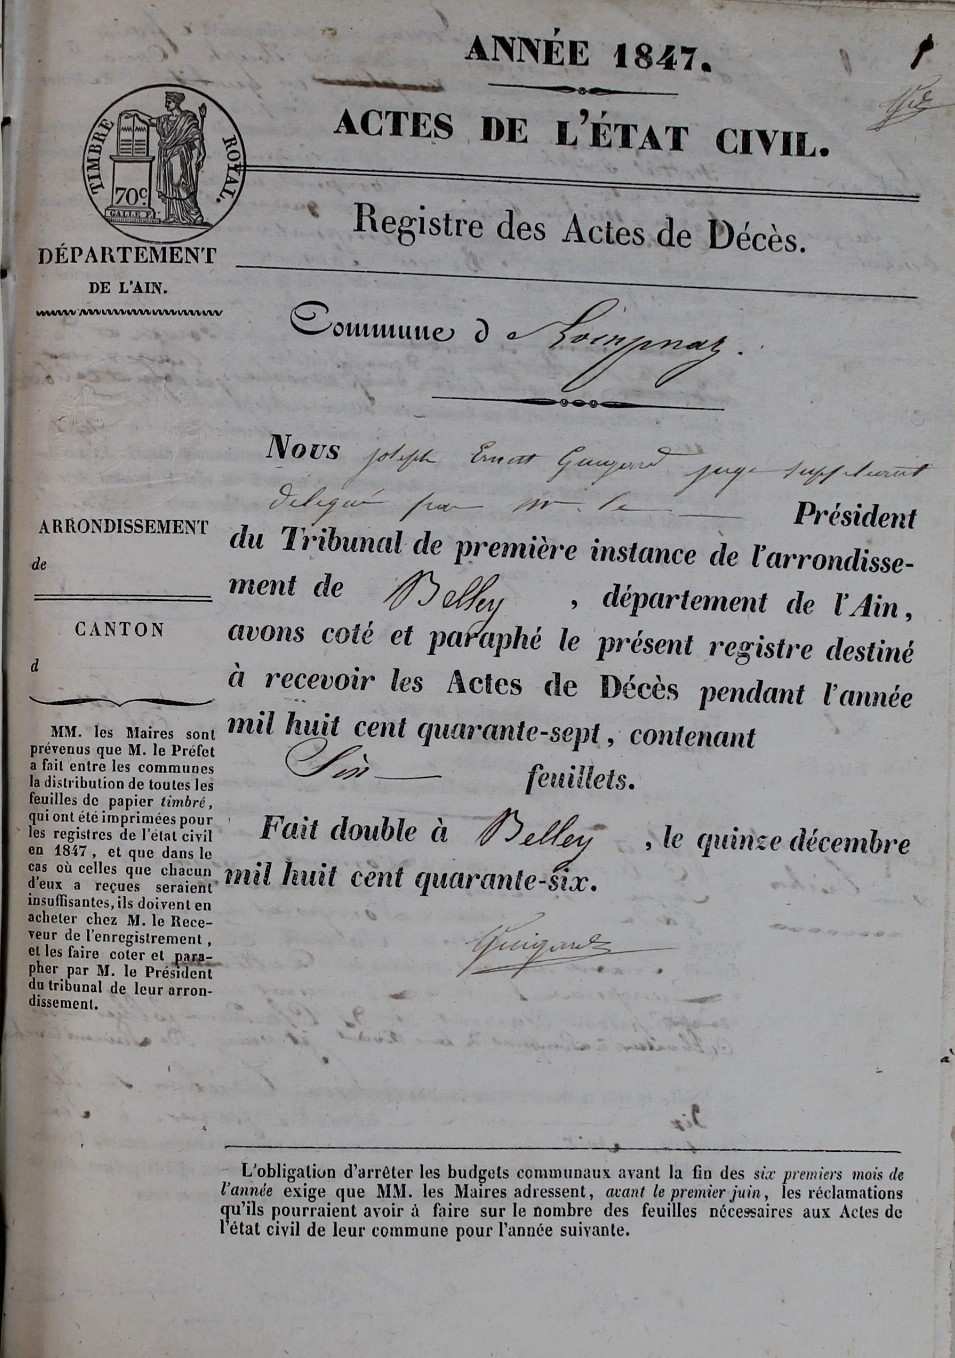 ANNÉE 1847.
1
ACTES DE L'ÉTAT CIVIL.
TIMBRE ROYAL.
70c
GALLE F.
Registre des Actes de Décès.
DÉPARTEMENT
DE L'AIN.
Commune d
Nous joseph Ernest Guigard juge suppléant
délégué par mr. le Président
du Tribunal de première instance de l'arrondisse-
ment de Belley, département de l'Ain,
avons coté et paraphé le présent registre destiné
à recevoir les Actes de Décès pendant l'année
mil huit cent quarante-sept, contenant
Six feuillets.
Fait double à Belley, le quinze décembre
mil huit cent quarante-six.
Guigard
ARRONDISSEMENT
de
CANTON
d
MM. les Maires sont
prévenus que M. le Préfet
a fait entre les communes
la distribution de toutes les
feuilles de papier timbré,
qui ont été imprimées pour
les registres de l'état civil
en 1847, et que dans le
cas où celles que chacun
d'eux a reçues seraient
insuffisantes, ils doivent en
acheter chez M. le Rece-
veur de l'enregistrement,
et les faire coter et para-
pher par M. le Président
du tribunal de leur arron-
dissement.
L'obligation d'arrêter les budgets communaux avant la fin des six premiers mois de
l'année exige que MM. les Maires adressent, avant le premier juin, les réclamations
qu'ils pourraient avoir à faire sur le nombre des feuilles nécessaires aux Actes de
l'état civil de leur commune pour l'année suivante.